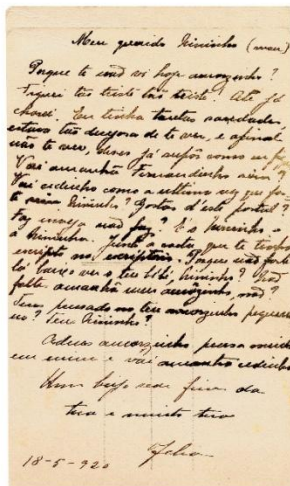 Meu querido Nininho (meu)
Porque te não vi hoje amorzinho?
Fiquei tão triste tão triste. Até já
chorei. Eu tinha tantas saudades
estava tão desejosa de te ver, e afinal
não te ver, deves já supôr como eu
Vai amanhã Fernandinho sim?
Vai cedinho como a ultima vez que
sim Nininho? Gostas d'este postal?
Faz inveja não faz? E's Nininho
a Nininha. Junto a carta que te tinha
escripto no escriptorio. Porque não
ver o teu Bébé Nininho? Não
falte amanhã meu amôrzinho, não?
Tem pensado no teu amorzinho pequeni
no? Teu Nininho?
Adeus amorzinho pensa muito
em mim e vai amanhã cedinho
Um beijo sem fim da
tua e muito tua
18-5-920